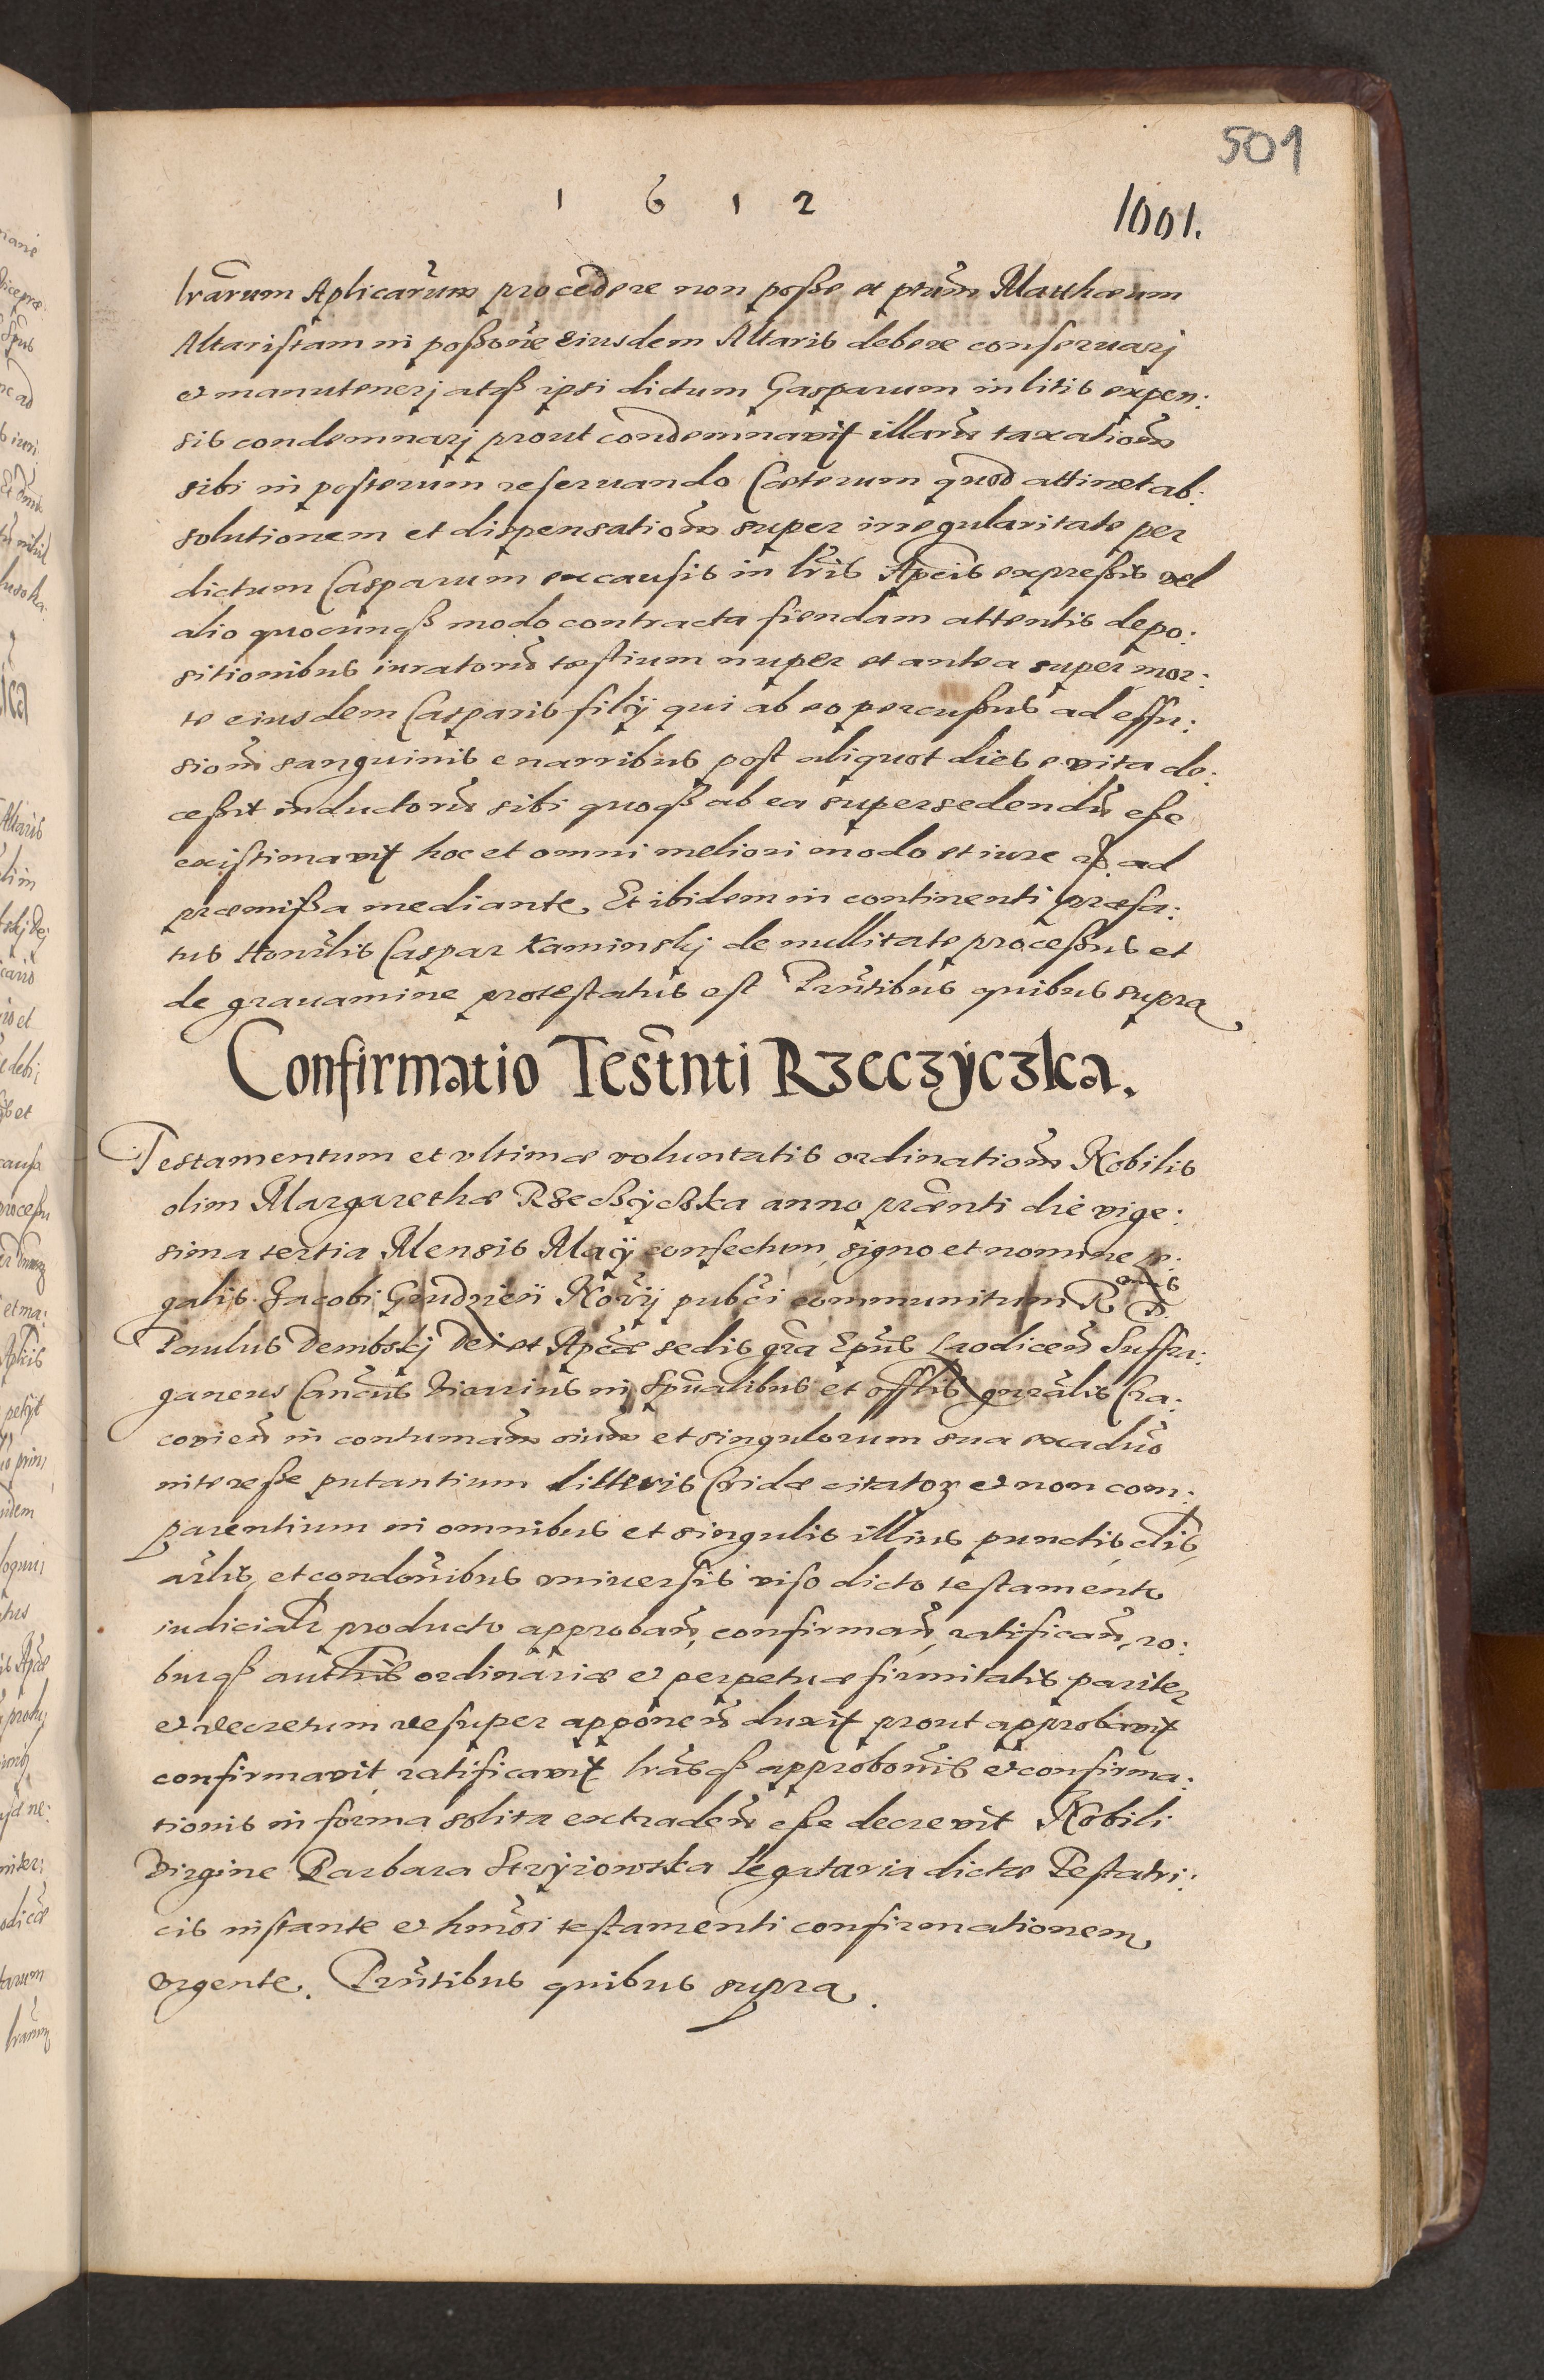 501
1 6 1 2
1001.
lrãrum Aplicarũm procedere non posse et ptũm Matthæum
Altaristam in possone eiusdem Altaris debere conseruarj
et manutenerj atqȝ ipsi dictum Gasparum in litis expen:
sis condemnarj prout condemnavit illarũ taxationẽ
sibi in posterum reseruando Cæterum quod attinet ab:
solutionem et dispensationẽ super irregularitate per
dictum Casparum ex causis in lrĩs Aplcis expressis vel
alio quocunqȝ modo contracta fiendam attentis depo:
sitionibus iuratorũ testium nuper et antea super mor:
te eiusdem Casparis filÿ qui ab eo percussus ad effu:
sionẽ sanguinis e narribus post aliquot dies e vita de:
cessit inductorũ sibi quoqȝ ab ea supersedendũ esse
existimavit hoc et omni meliori modo et iure ad
præmissa mediante. Et ibidem in continenti præfa:
tus Honrãlis Caspar Kaminskj de nullitate processus et
de grauamine protestatus est Prñtibus quibus supra
Confirmatio Testñti Rzeczÿczka.
Testamentum et vltimæ voluntatis ordinationẽ Nobilis
olim Margarethæ Rzeczÿczka anno præñti die vige:
sima tertia Mensis Maÿ confectum, signo et nomine le:
galis Jacobi Grudzień Norÿ pubci communitum R D.
Paulus Dembskj Dei et Aplcæ sedis gra Epũs Laodiceñ Suffra:
ganeus Cancũs Vicarius in Spũalibus et offlis gnrãlis Cra:
covieñ in contumaciã oiũm et singulorum sua exaduo
interesse putantium litteris Cridæ citatoꝝ et non com:
parentium in omnibus et singulis illius punctis, clis,
arlis, et condonĩbus vniuersis viso dicto testamento
iudicialr producto approbañ, confirmañ, ratificañ, ro:
burqȝ autthis ordinariæ et perpetuæ firmitatis pariter
et decretum desuper apponeñ duxit prout approbavit
confirmavit ratificavit lrãsqȝ approbonĩs et confirma:
tionis in forma solita extradeñ esse decrevit Nobili
Virgine Barbara Strÿiowska Legataria dictæ Testatri:
cis instante et hmõi testamenti confirmationem
vrgente. Prñtibus quibus supra.